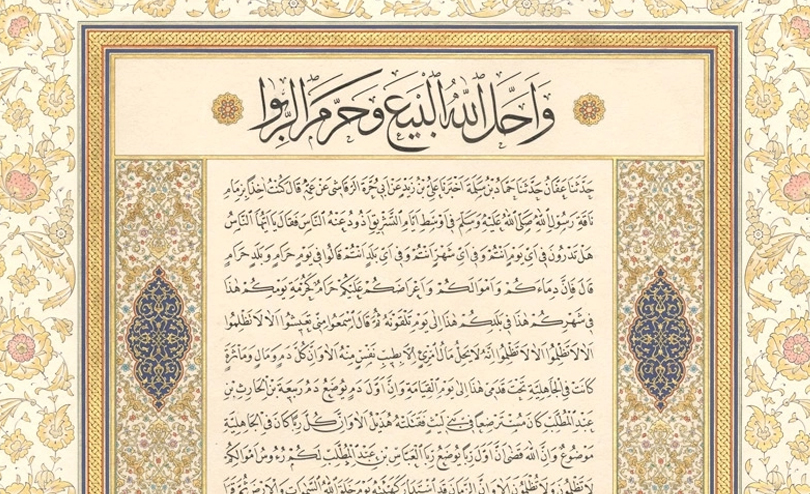 وَاَحَلَّ اللّٰهُ الْبَيْعَ وَحَرَّمَ الرِّبٰوا
حَدَّثَنَا عَفَّانُ حَدَّثَنَا حَمَّادُ بْنُ سَلَمَةَ اَخْبَرَنَا عَلِيُّ بْنُ زَيْدٍ عَنْ اَبِي حُرَّةَ الرَّقَاشِيِّ عَنْ عَمِّهِ قَالَ كُنْتُ اٰخِذًا بِزِمَامِ
نَاقَةِ رَسُولِ اللّٰهِ صَلَّى اللّٰهُ عَلَيْهِ وَسَلَّمَ فِي اَوْسَطِ اَيَّامِ التَّشْرِيقِ اَذُودُ عَنْهُ النَّاسَ فَقَالَ يَا اَيُّهَا النَّاسُ
هَلْ تَدْرُونَ فِي اَيِّ يَوْمٍ اَنْتُمْ وَفِي اَيِّ شَهْرٍ اَنْتُمْ وَفِي اَيِّ بَلَدٍ اَنْتُمْ قَالُوا فِي يَوْمٍ حَرَامٍ وَبَلَدٍ حَرَامٍ
قَالَ فَاِنَّ دِمَاءَكُمْ وَاَمْوَالَكُمْ وَاَعْرَاضَكُمْ عَلَيْكُمْ حَرَامٌ كَحُرْمَةِ يَوْمِكُمْ هٰذَا
فِي شَهْرِكُمْ هٰذَا فِي بَلَدِكُمْ هٰذَا اِلٰى يَوْمِ تَلْقَوْنَهُ ثُمَّ قَالَ اسْمَعُوا مِنِّي تَعِيشُوا اَلَا لَا تَظْلِمُوا
اَلَا لَا تَظْلِمُوا اَلَا لَا تَظْلِمُوا اِنَّهُ لَا يَحِلُّ مَالُ امْرِئٍ اِلَّا بِطِيبِ نَفْسٍ مِنْهُ اَلَا وَاِنَّ كُلَّ دَمٍ وَمَالٍ وَمَأْثَرَةٍ
كَانَتْ فِي الْجَاهِلِيَّةِ تَحْتَ قَدَمِي هٰذِهِ اِلٰى يَوْمِ الْقِيَامَةِ وَاِنَّ اَوَّلَ دَمٍ يُوضَعُ دَمُ رَبِيعَةَ بْنِ الْحَارِثِ بْنِ
عَبْدِ الْمُطَّلِبِ كَانَ مُسْتَرْضِعًا فِي بَنِي لَيْثٍ فَقَتَلَتْهُ هُذَيْلٌ اَلَا وَاِنَّ كُلَّ رِبًا كَانَ فِي الْجَاهِلِيَّةِ
مَوْضُوعٌ وَاِنَّ اللّٰهَ قَضٰى اَنَّ اَوَّلَ رِبًا يُوضَعُ رِبَا الْعَبَّاسِ بْنِ عَبْدِ الْمُطَّلِبِ لَكُمْ رُءُوسُ اَمْوَالِكُمْ
لَا تَظْلِمُونَ وَلَا تُظْلَمُونَ اَلَا وَاِنَّ الزَّمَانَ قَدِ اسْتَدَارَ كَهَيْئَتِهِ يَوْمَ خَلَقَ اللّٰهُ السَّمٰوَاتِ وَالْاَرْضَ